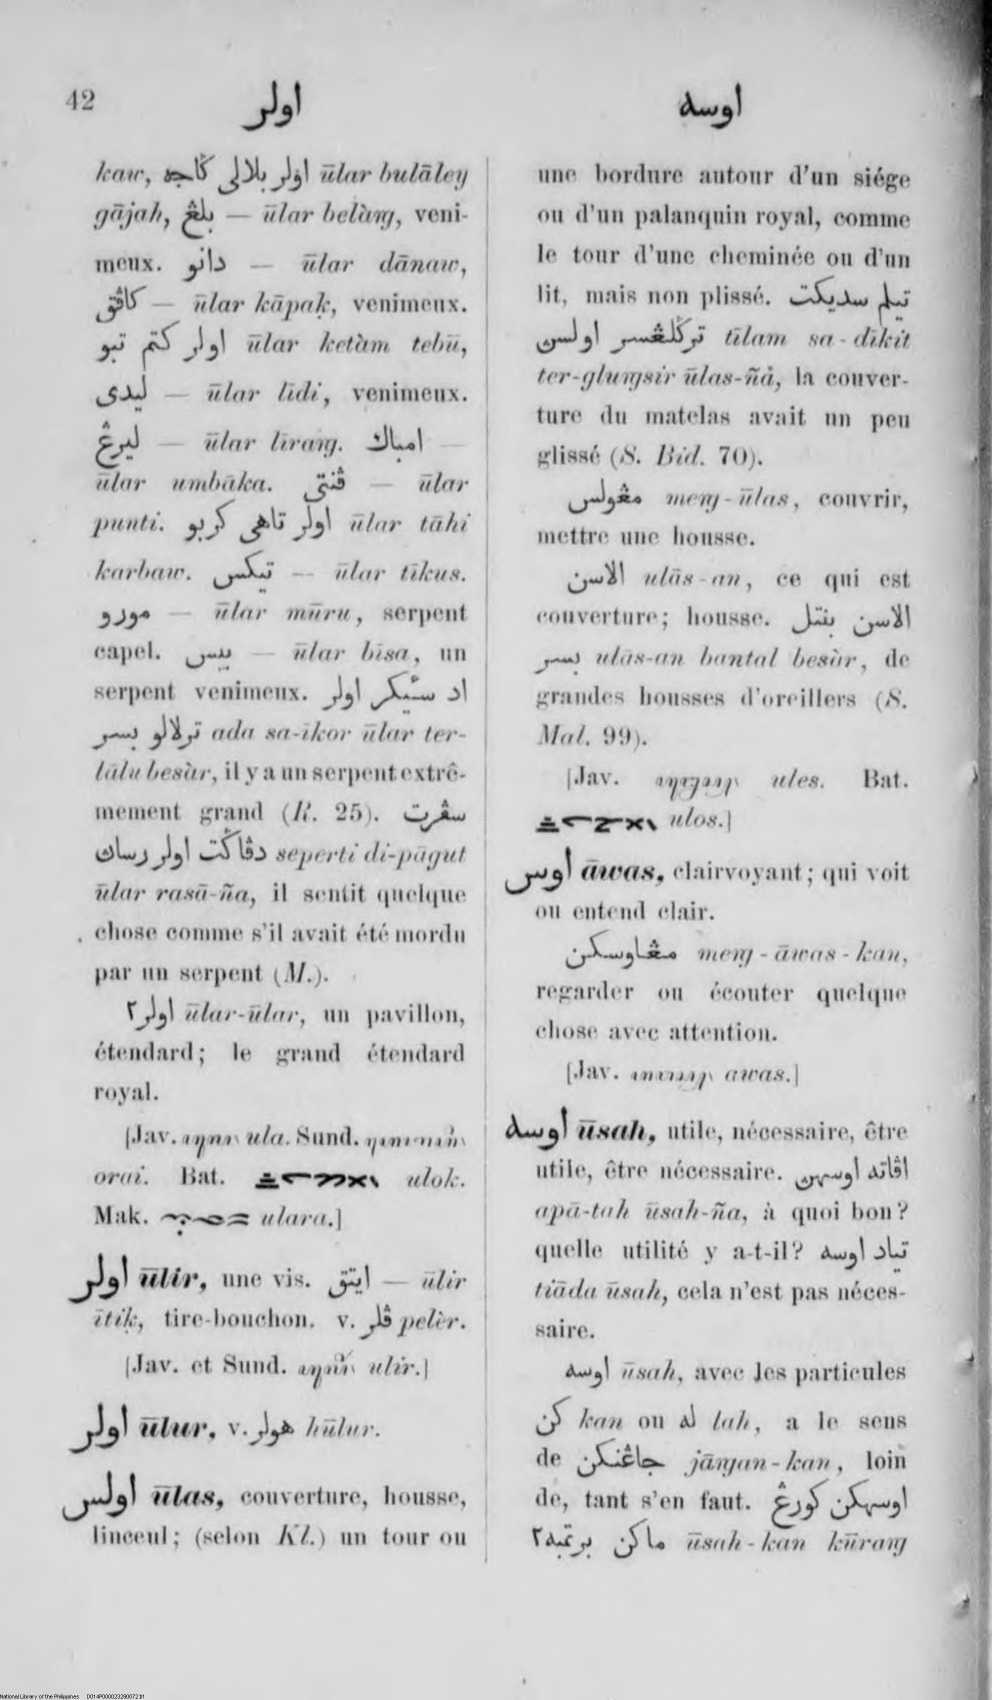 42
اولر
اوسه
kaw, اولر بلالی ڬاجه ūlar bulāley
gājah, بلڠ — ūlar belàṅg, veni-
meux. دانو — ūlar dānaw,
کاڤق — ūlar kāpaḳ, venimeux.
اولر کتم تبو ūlar ketàm tebū,
ليدی — ūlar līdi, venimeux.
ليرڠ — ūlar līraṅg. امباك —
ūlar umbāka. ڤنتی — ūlar
punti. اولر تاهی کربو ūlar tāhi
karbaw. تيکس — ūlar tīkus.
مورو — ūlar mūru, serpent
capel. بيس — ūlar bīsa, un
serpent venimeux. اد سئيکر اولر
ترلالو بسر ada sa-īkor ūlar ter-
lālu besàr, il y a un serpent extrê-
mement grand (R. 25). سڤرت
دڤاڬت اولر رسان seperti di-pāgut
ūlar rasā-ña, il sentit quelque
chose comme s'il avait été mordu
par un serpent (M.).
اولر٢ ūlar-ūlar, un pavillon,
étendard; le grand étendard
royal.
[Jav. ula. Sund.
orai. Bat. ulok.
Mak. ulara.]
اولر ūlir, une vis. ايتق — ūlir
ītiḳ, tire-bouchon. v. ڤلر pelèr.
[Jav. et Sund. ulir.]
اولر ūlur, v. هولر hūlur.
اولس ūlas, couverture, housse,
linceul; (selon Kl.) un tour ou
une bordure autour d'un siége
ou d'un palanquin royal, comme
le tour d'une cheminée ou d'un
lit, mais non plissé. تيلم سديکت
ترڬلڠسر اولسن tīlam sa-dīkit
ter-gluṅgsir ūlas-ñā, la couver-
ture du matelas avait un peu
glissé (S. Bid. 70).
مڠولس meṅg-ūlas, couvrir,
mettre une housse.
الاسن ulās-an, ce qui est
couverture; housse. الاسن بنتل
بسر ulās-an bantal besàr, de
grandes housses d'oreillers (S.
Mal. 99).
[Jav. ules. Bat.
ulos.]
اوس āwas, clairvoyant; qui voit
ou entend clair.
مڠاوسکن meṅg-āwas-kan,
regarder ou écouter quelque
chose avec attention.
[Jav. awas.]
اوسه ūsah, utile, nécessaire, être
utile, être nécessaire. اڤاته اوسهن
apā-tah ūsah-ña, à quoi bon?
quelle utilité y a-t-il? تياد اوسه
tiāda ūsah, cela n'est pas néces-
saire.
اوسه ūsah, avec les particules
کن kan ou له lah, a le sens
de جاڠنکن jāṅgan-kan, loin
de, tant s'en faut. اوسهکن کورڠ
ماکن برتمبه٢ ūsah-kan kūraṅg
National Library of the Philippines